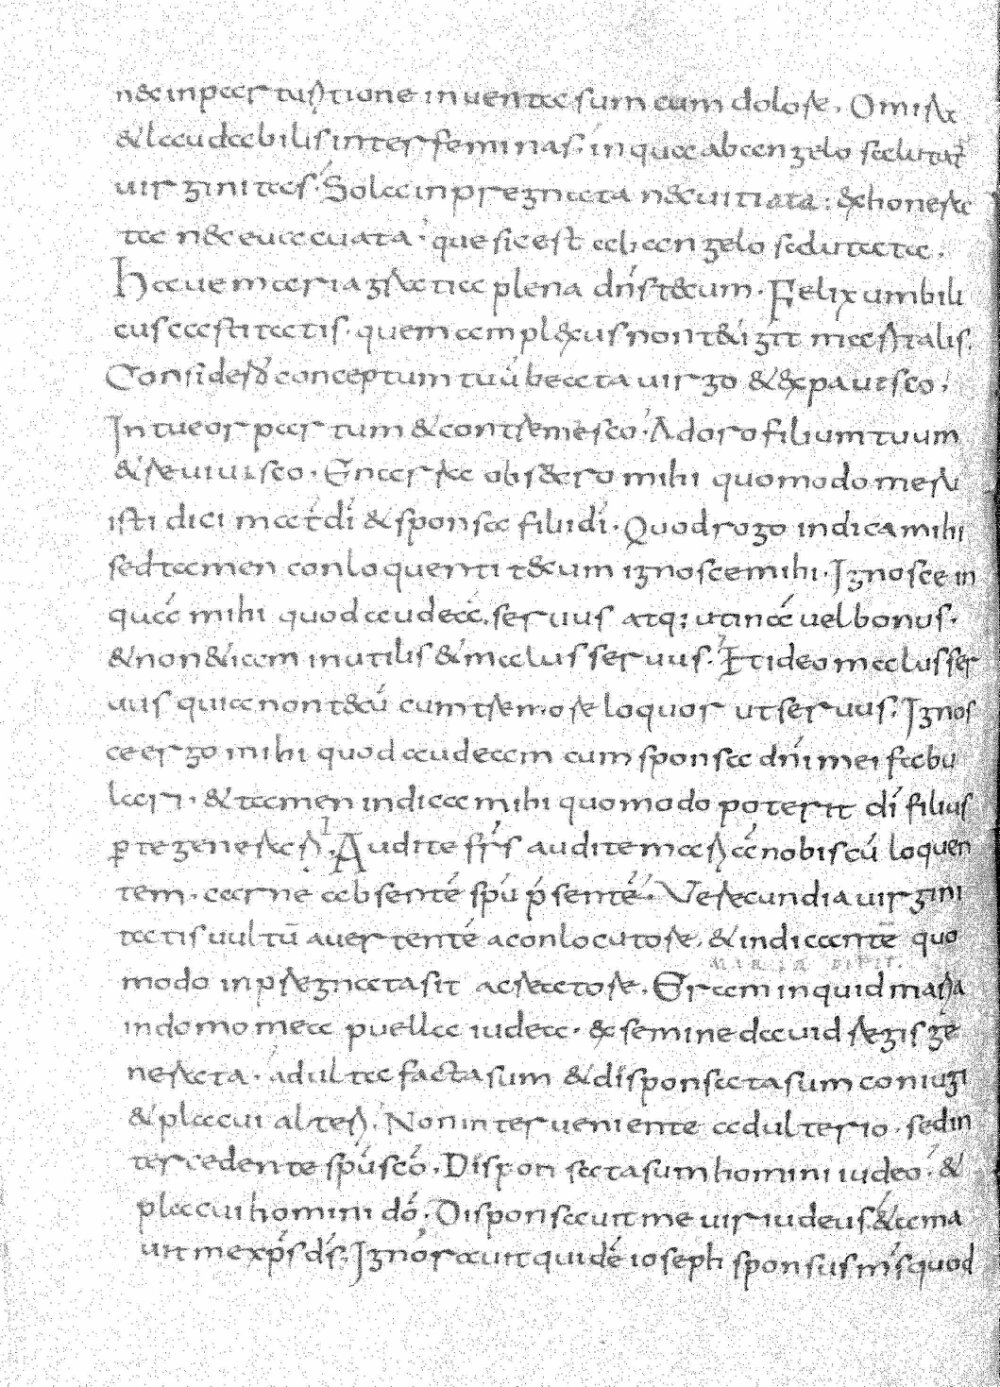 nec in parturitione inuenta es sum cum dolore. O mire
& laudabilis inter feminas; in qua ab angelo salutat̄
uirginitas. Sola inpregnata nec uitiata: & honesta
ta nec euacuata; que sic est ab angelo salutata.
Haue maria gratia plena dn̄s tecum. Felix umbili
cus castitatis. quem amplexus non tetigit maritalis.
Considero conceptum tuū beata uirgo & expauesco.
Intueor partum & contremesco. Adoro filium tuum
& reuiuisco. Enarra obsecro mihi quomodo meru
isti dici mat̄ dī & sponsa filii dī. Quod rogo indica mihi
sed tamen conloquenti tecum ignosce mihi. Ignosce in
quā mihi quod audeā. seruus atq; utinā uel bonus.
& non etiam inutilis & malus seruus. Et ideo malus ser
uus quia non tecū cum tremore loquor ut seruus. Ignos
ce ergo mihi quod audeam cum sponsa dn̄i mei fabu
lari. & tamen indica mihi quomodo poterit dī filius
ꝑ te generari. Audite frs̄ audite mariā nobiscū loquen
tem. carne absentē spū p̄sentē. Verecundia uirgini
tatis uultū auertentē a conlocutore. & indicantē quo
MARIA DIXIT.
modo inpregnata sit a creatore. Eram inquid maria
in domo mea puella iudea. ex semine dauid regis ge
nerata. adulta facta sum & disponsata sum coniugi
& placui alteri. Non interueniente adulterio. sed in
tercedente spū scō. Disponsata sum homini iudeo. &
placui homini dō. Disponsauit me uir iudeus. & ama
uit me xp̄s ds̄. Ignorauit quidē ioseph sponsus ms̄ quod